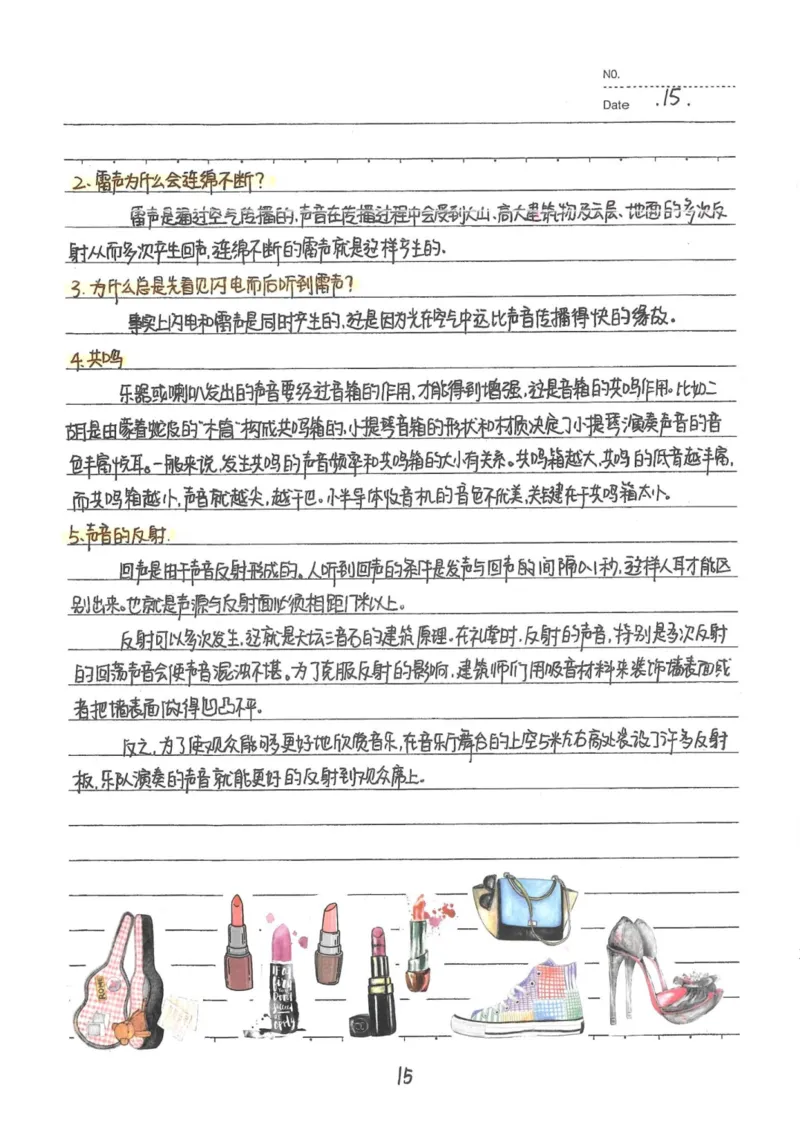 NO.
Date .15.
2.雷声为什么会连绵不断?
雷声是通过空气传播的,声音在传播过程中会受到大山、高大建筑物及云层、地面的多次反
射从而多次产生回声,连绵不断的雷声就是这样产生的、
3.为什么总是先看见闪电而后听到雷声?
事实上闪电和雷声是同时产生的,这是因为光在空气中远比声音传播得快的缘故。
4.共鸣
乐器或喇叭发出的声音要经过音箱的作用,才能得到增强,这是音箱的共鸣作用。比如二
胡是由蒙着蛇皮的"木筒"构成共鸣箱的,小提琴音箱的形状和材质决定了小提琴演奏声音的音
色丰富悦耳。一般来说,发生共鸣的声音频率和共鸣箱的大小有关系。共鸣箱越大,共鸣的低音越丰富,
而共鸣箱越小,声音就越尖,越干巴。小半导体收音机的音色不优美,关键在于共鸣箱太小。
5、声音的反射.
回声是由于声音反射形成的。人听到回声的条件是发声与回声的间隔0.1秒,这样人耳才能区
别出来。也就是声源与反射面必须相距17米以上。
反射可以多次发生,这就是天坛三音石的建筑原理。在礼堂时,反射的声音,特别是多次反射
的回荡声音会使声音混浊不堪。为了克服反射的影响,建筑师们用吸音材料来装饰墙表面或
者把墙表面做得凹凸不平。
反之,为了使观众能够更好地欣赏音乐,在音乐厅舞台的上空5米左右高处装设了许多反射
板,乐队演奏的声音就能更好的反射到观众席上。
15